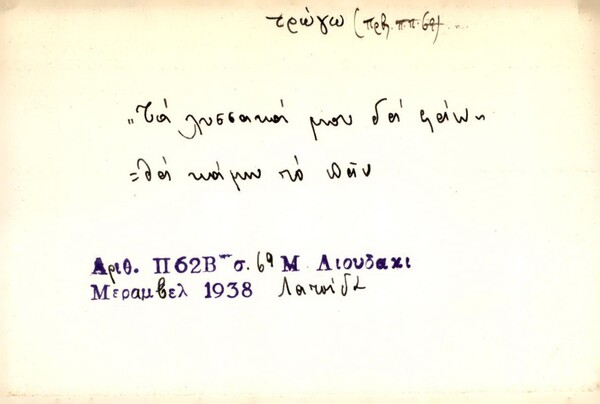 τρώγω (πρβ. ππ. 69)
„Τά λυσσακά μου θά φάω„
= θά κάμω τό πᾶν
Αριθ. Π62Β σ. 69 Μ Λιουδακι
Μεραμβελ 1938 Λατσίδα